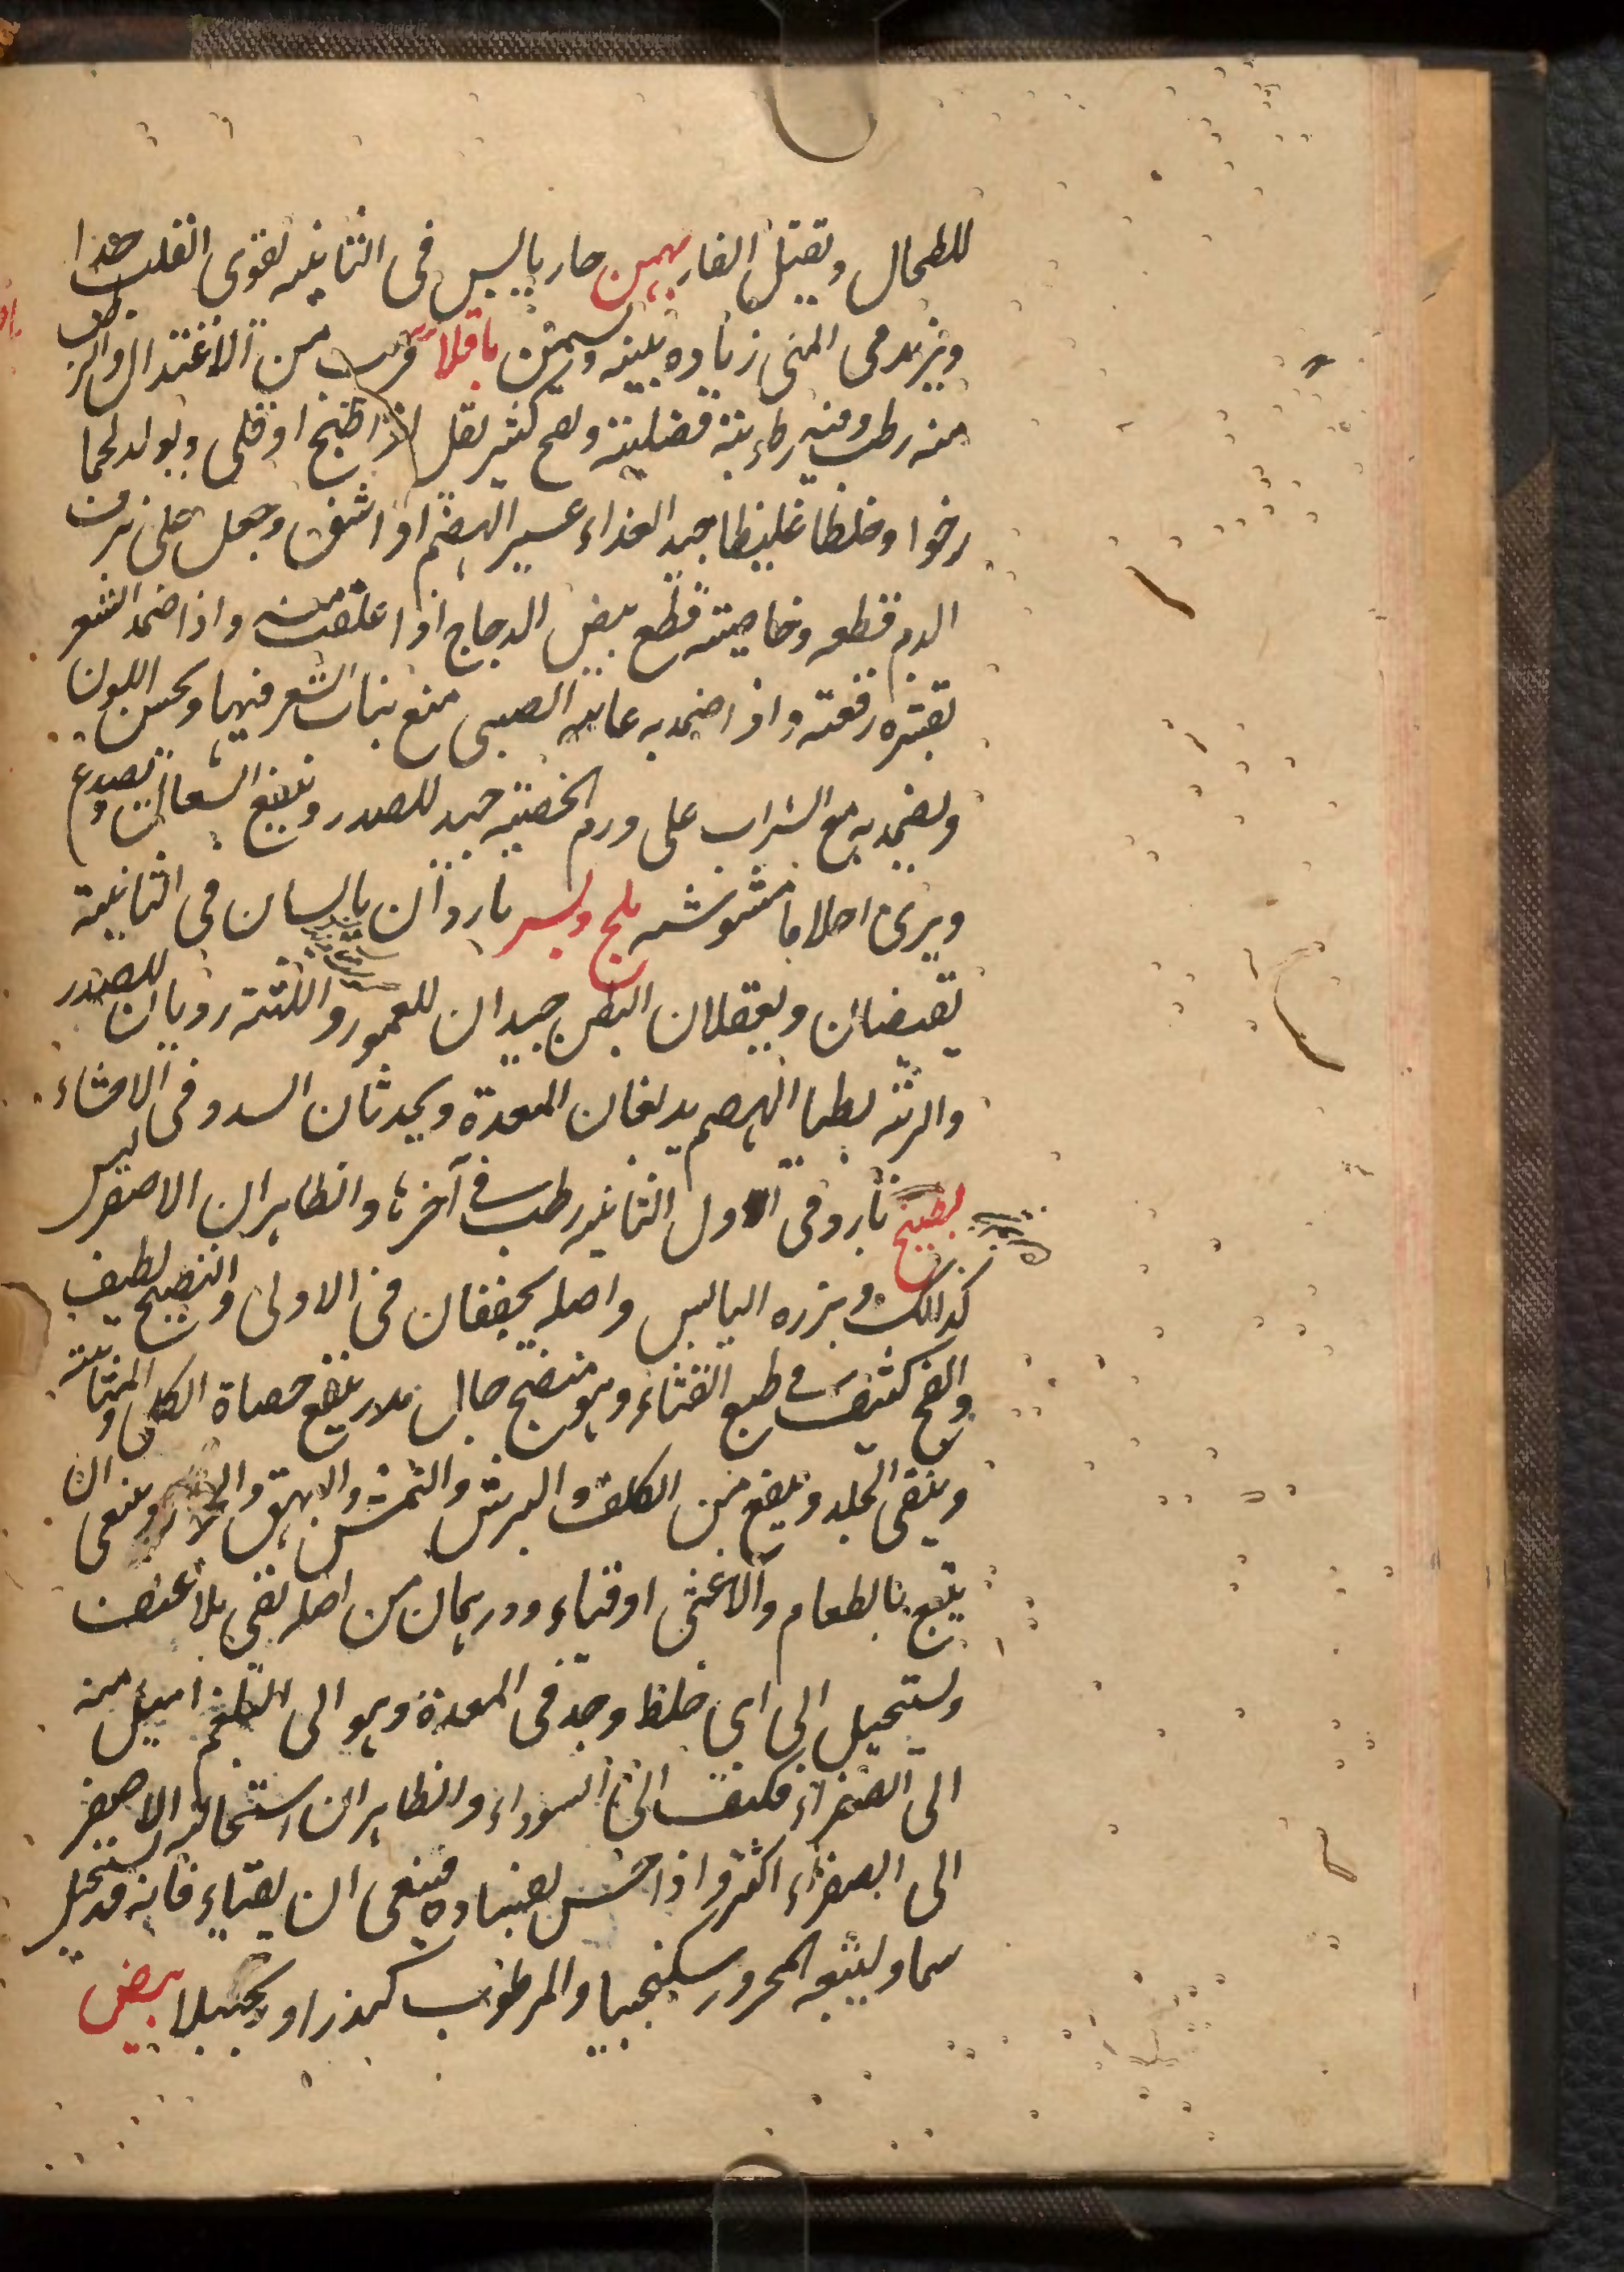 للطحال ويقتل الفار بهمن حار يابس فى الثانيه يقوى القلب جدا
ويزيد فى المنى زياده بينه ويسمن باقلا قريب من الاعتدال والرطب
منه رطب وفيه رطوبته فضليته ولهج كثير يقل اذا طبخ او قلى ويولد لحما
رخوا وخلطا غليظا جيد الغذاء عسير الهضم او اشق وجعل على نزف
الدم قطعه وخاصيته قطع بيض الدجاج اذا علفت منه واذا ضمد الشعر
بقشره رقعته واذا ضمد به عانه الصبى منع نبات الشعر فيها ويحسن اللون
ويضمد به مع الشراب على ورم الخصيه جيد للصدر وينفع السعال ويصدع
ويرى احلاما مشوشه بلح وبسر باردان يابسان فى الثانية
يقبضان ويعقلان البطن جيدان للعمور واللثه رديان للصدر
والريه بطيا الهضم يدبغان المعدة ويحدثان السدد فى الاحشاء
بطيخ بارد فى اول الثانيه رطب فى آخرها والظاهر ان الاصفر ليس
كذالك وبزره اليابس واصله يجففان فى الاولى والنضيج لطيف
والفج كثيف فى طبع القثاء وهو منضج جال مدر ينفع حصاة الكلى والمثانه
وينقى الجلد وينفع من الكلف والبرش والنمش والبهق والحزاز وينبغى ان
يتبع بالطعام والا غثى او قياء ودرهمان من اصله يقى بلا عنف
ويستحيل الى اى خلط وجد فى المعدة وهو الى البلغم اميل منه
الى الصفراء فكيف الى السوداء والظاهر ان استحاله الاصفر
الى الصفراء اكثر واذا حس بفساده فينبغى ان يقياء فانه قد يستحيل
سما وليتبعه المحرور سكنجبيا والمرطوب كندرا وزنجبيلا بيض